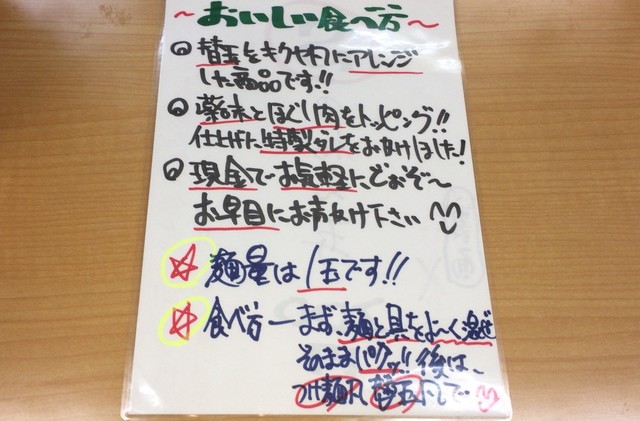 ～おいしい食べ方～
替玉をキクヤ流にアレンジ
した商品です!!
薬味とほぐし肉をトッピング!!
仕上げに特製タレをおかけしました!
現金でお気軽にどおぞ～
お早目にお声がけ下さい
☆麺量は1玉です!!
☆食べ方ーまず、麺と具をよ～く混ぜ
そのままパクッ!!後は、
つけ麺風、替玉風で…